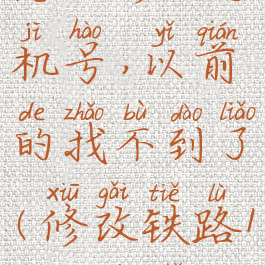 jī hào yǐ qián
机号,以前
de zhǎo bù dào liǎo
的找不到了
xiū gǎi tiě lù
(修改铁路